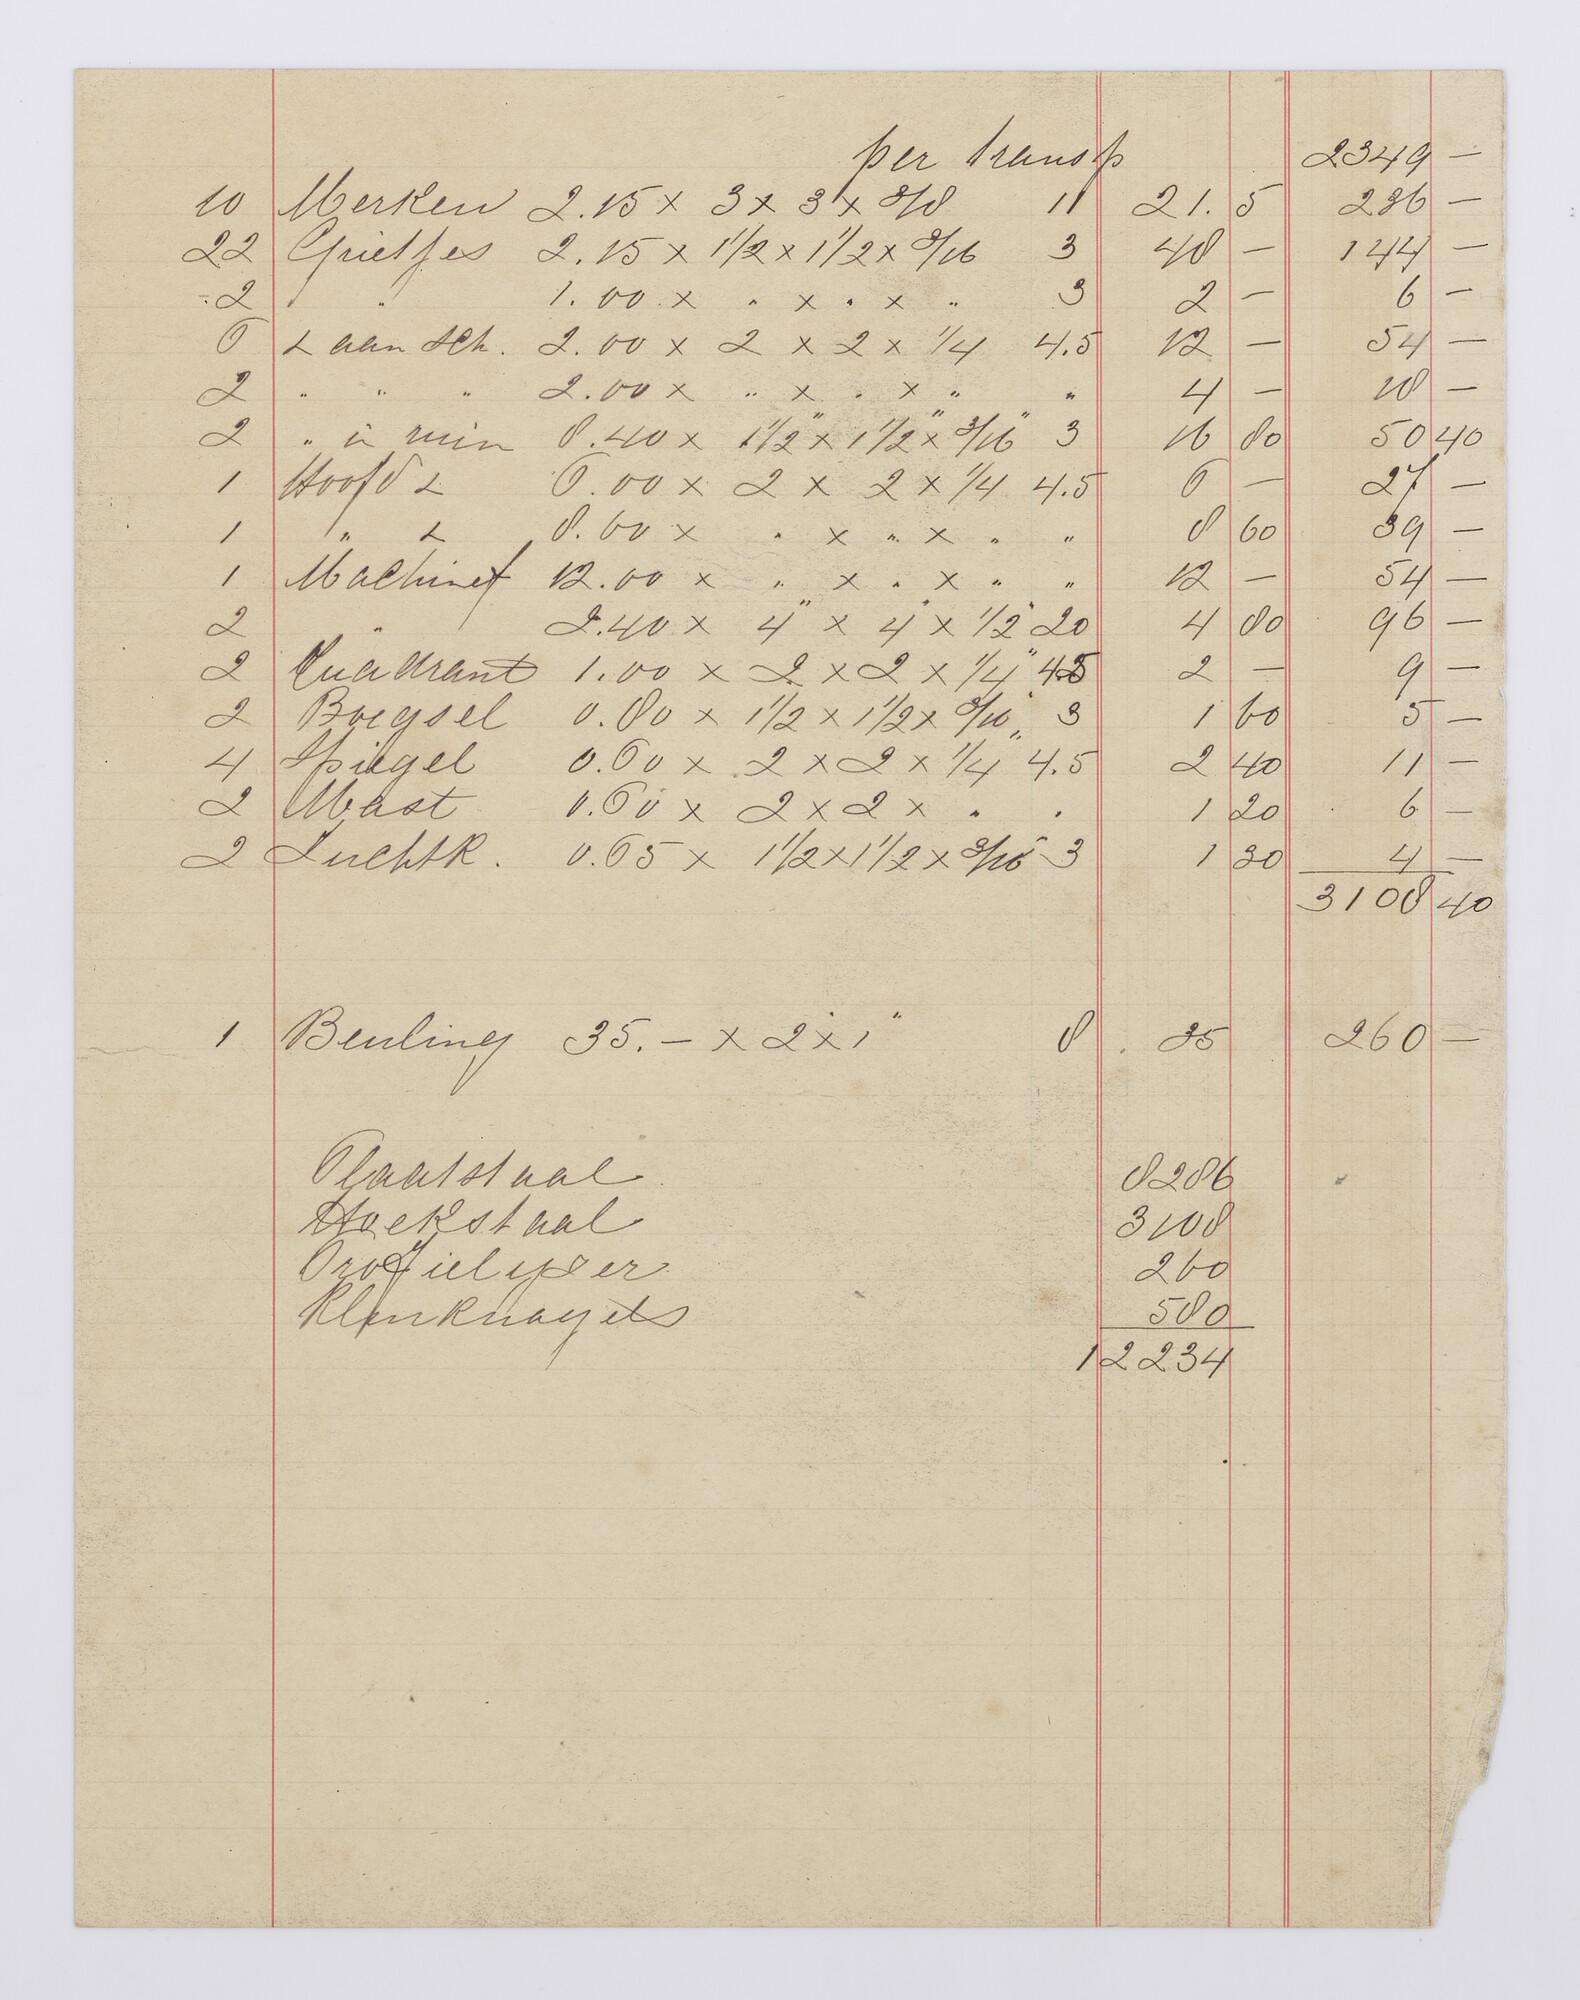 per transp 2349 —
10 Merken 2.15 x 3 x 3 x 3/8 11 21. 5 236 —
22 Grietjes 2.15 x 1 1/2 x 1 1/2 x 3/16 3 48 — 144 —
2 " " 1.00 x " x " x " 3 2 — 6 —
6 L aan sch. 2.00 x 2 x 2 x 1/4 4.5 12 — 54 —
2 " " " 2.00 x " x " x " " 4 — 18 —
2 " in ruim 8.40 x 1 1/2" x 1 1/2" x 3/16" 3 16 80 50 40
1 Hoofd L 6.00 x 2 x 2 x 1/4 4.5 6 — 27 —
1 " L 8.60 x " x " x " " 8 60 39 —
1 Machinef 12.00 x " x " x " " 12 — 54 —
2 " 2.40 x 4" x 4" x 1/2" 20 4 80 96 —
2 Quadrant 1.00 x 2 x 2 x 1/4" 4.5 2 — 9 —
2 Boegsel 0.80 x 1 1/2 x 1 1/2 x 3/16" 3 1 60 5 —
4 Spiegel 0.60 x 2 x 2 x 1/4" 4.5 2 40 11 —
2 Mast 0.60 x 2 x 2 x " " 1 20 6 —
2 Luchtk. 0.65 x 1 1/2 x 1 1/2 x 3/16" 3 1 30 4 —
3108 40
1 Beuling 35.— x 2" x 1" 8 35 260 —
Plaatstaal 8286
Hoekstaal 3108
Profielyzer 260
Klinknagels 580
12234